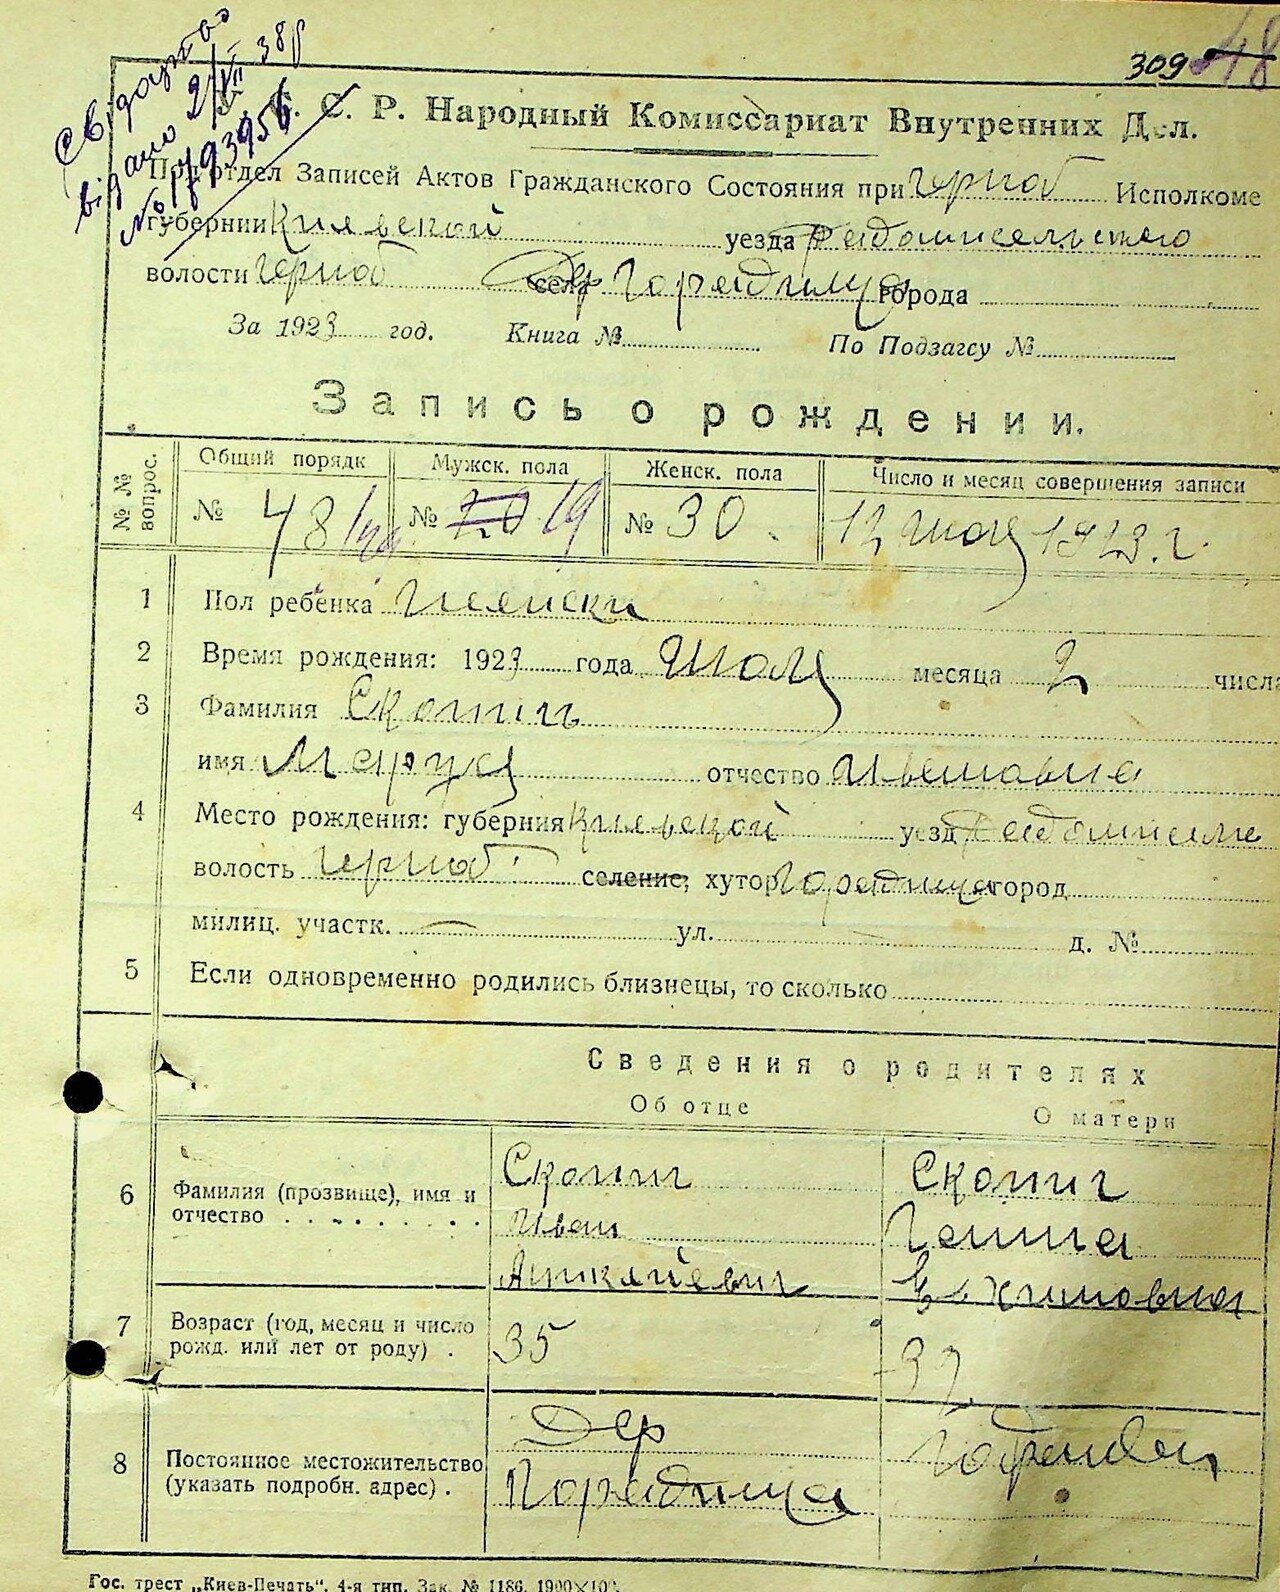 309 48
Свідоцтво
видано 2/VII 38р
№ 1793956
С. Р. Народный Комиссариат Внутренних Дел.
Подотдел Записей Актов Гражданского Состояния при Черноб Исполкоме
губернии Киевской уезда Радомисельского
волости Черноб села Дер Городище города
За 1923 год. Книга № По Подзагсу №
Запись о рождении.
№ № вопрос.
Общий порядк Мужск. пола Женск. пола Число и месяц совершения записи
№ 48 № 20 19 № 30 12 июля 1923.г.
1 Пол ребенка Женски
2 Время рождения: 1923 года Июля месяца 2 числа
3 Фамилия
имя отчество Ивановна
4 Место рождения: губерния Киевской уезд Радомисел
волость Черноб. селение, хутор Городище город
милиц. участк. — ул. д. №
5 Если одновременно родились близнецы, то сколько
Сведения о родителях
Об отце О матери
6 Фамилия (прозвище), имя и
отчество
Иван Ганна
7 Возраст (год, месяц и число
рожд. или лет от роду) . 35 32
8 Постоянное местожительство
(указать подробн. адрес) .
Дер
Городище
Гос. трест „Киев-Печать“. 4-я тип. Зак. № 1186.